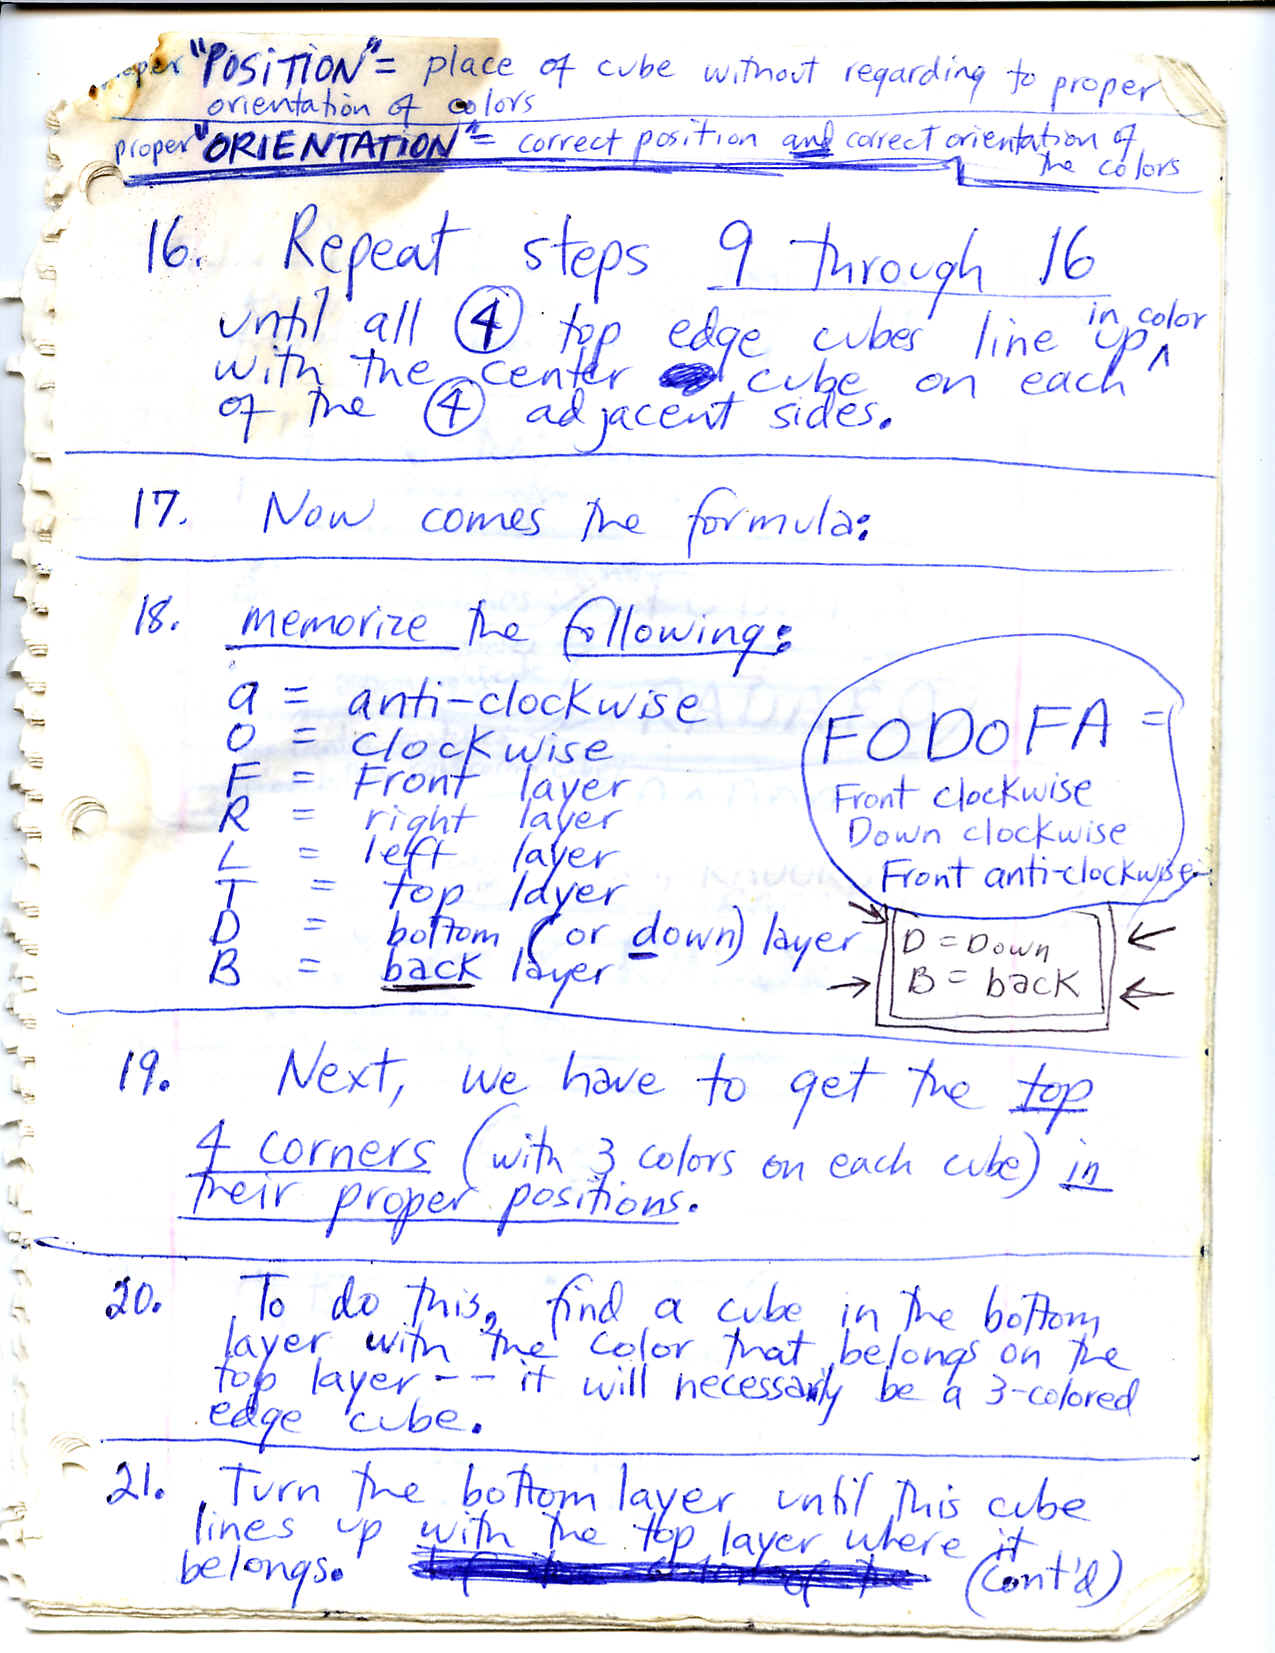 proper "POSITION" = place of cube without regarding to proper
orientation of colors
proper "ORIENTATION" = correct position and correct orientation of
the colors
16. Repeat steps 9 through 16
until all 4 top edge cubes line up in color
with the center cube on each
of the 4 adjacent sides.
17. Now comes the formula:
18. memorize the following:
a = anti-clockwise
O = clockwise
F = Front layer
R = right layer
L = left layer
T = top layer
D = bottom (or down) layer
B = back layer
FODOFA =
Front clockwise
Down clockwise
Front anti-clockwise
D = Down
B = back
19. Next, we have to get the top
4 corners (with 3 colors on each cube) in
their proper positions.
20. To do this, find a cube in the bottom
layer with the color that belongs on the
top layer -- it will necessarily be a 3-colored
edge cube.
21. Turn the bottom layer until this cube
lines up with the top layer where it
belongs. (cont'd)